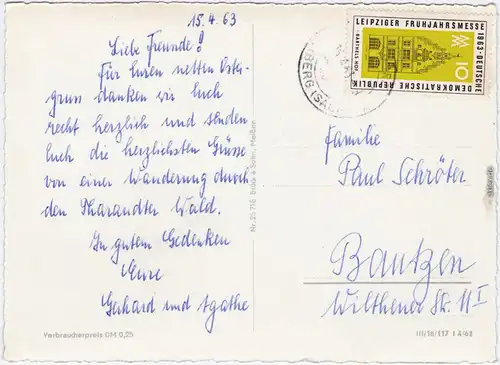 15.4.63
Liebe Freunde!
Für Euren netten Oster-
gruss danken wir Euch
recht herzlich und senden
Euch die herzlichsten Grüsse
von einer Wanderung durch
den Tharandter Wald.
In gutem Gedenken
Eure
Gerhard und Agathe
Verbraucherpreis DM 0,25
Meißen
LEIPZIGER FRÜHJAHRSMESSE 1963 · DEUTSCHE
DEMOKRATISCHE REPUBLIK
· BARTHELS HOF ·
10
BERG (SA
Familie
Paul Schröter
Bautzen
Wilthener Str. 11 I
III/18/117 1 4/62